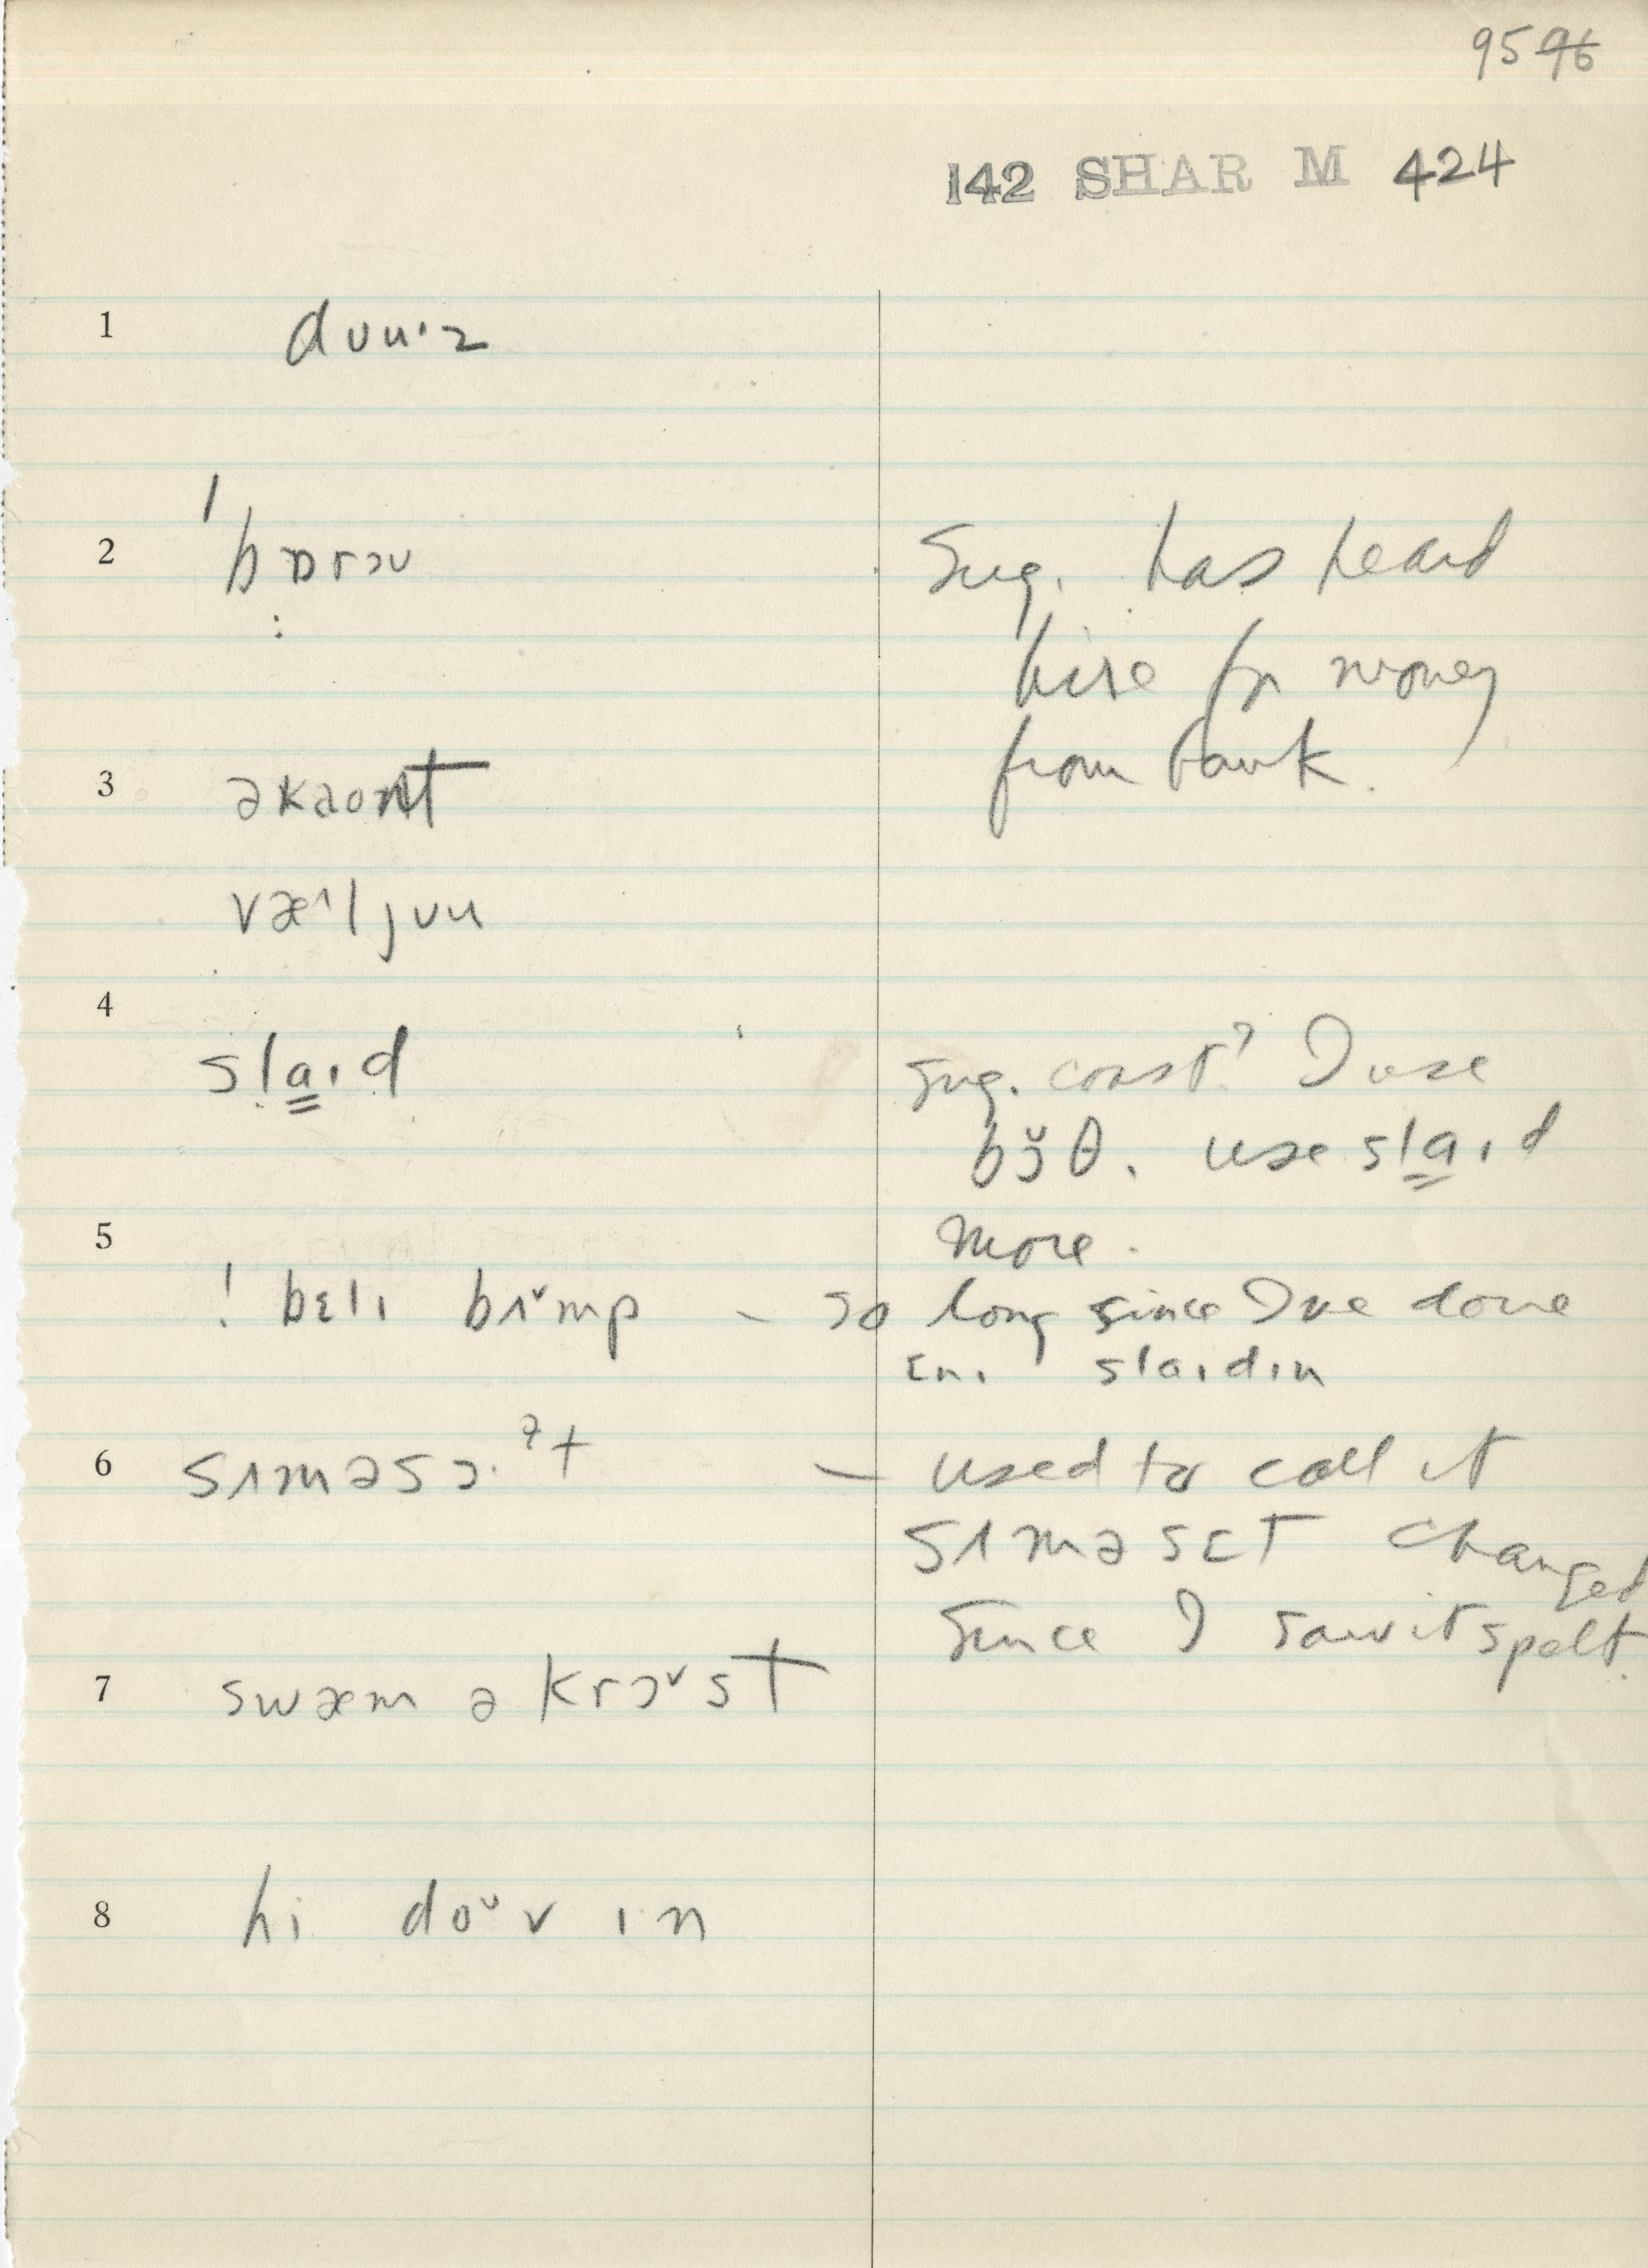 95 96
142 SHAR M 424
1 dʊuˑz
2 ˈbɒrəʊ
Sug. has heard
hire for money
from bank.
3 əkaont
væ^ljʊu
4 slaɪd
Sug. coast? I use
bɔ̆θ. use slaɪd
more.
5 ! bɛlɪ bɪ˅mp – so long since I've done
slaɪdɪn
6 sɪməsɔ.ət – used to call it
sɪməsɛt changed
since I saw it spelt.
7 swæm ə krɔ˅st
8 hi do˅v ɪn